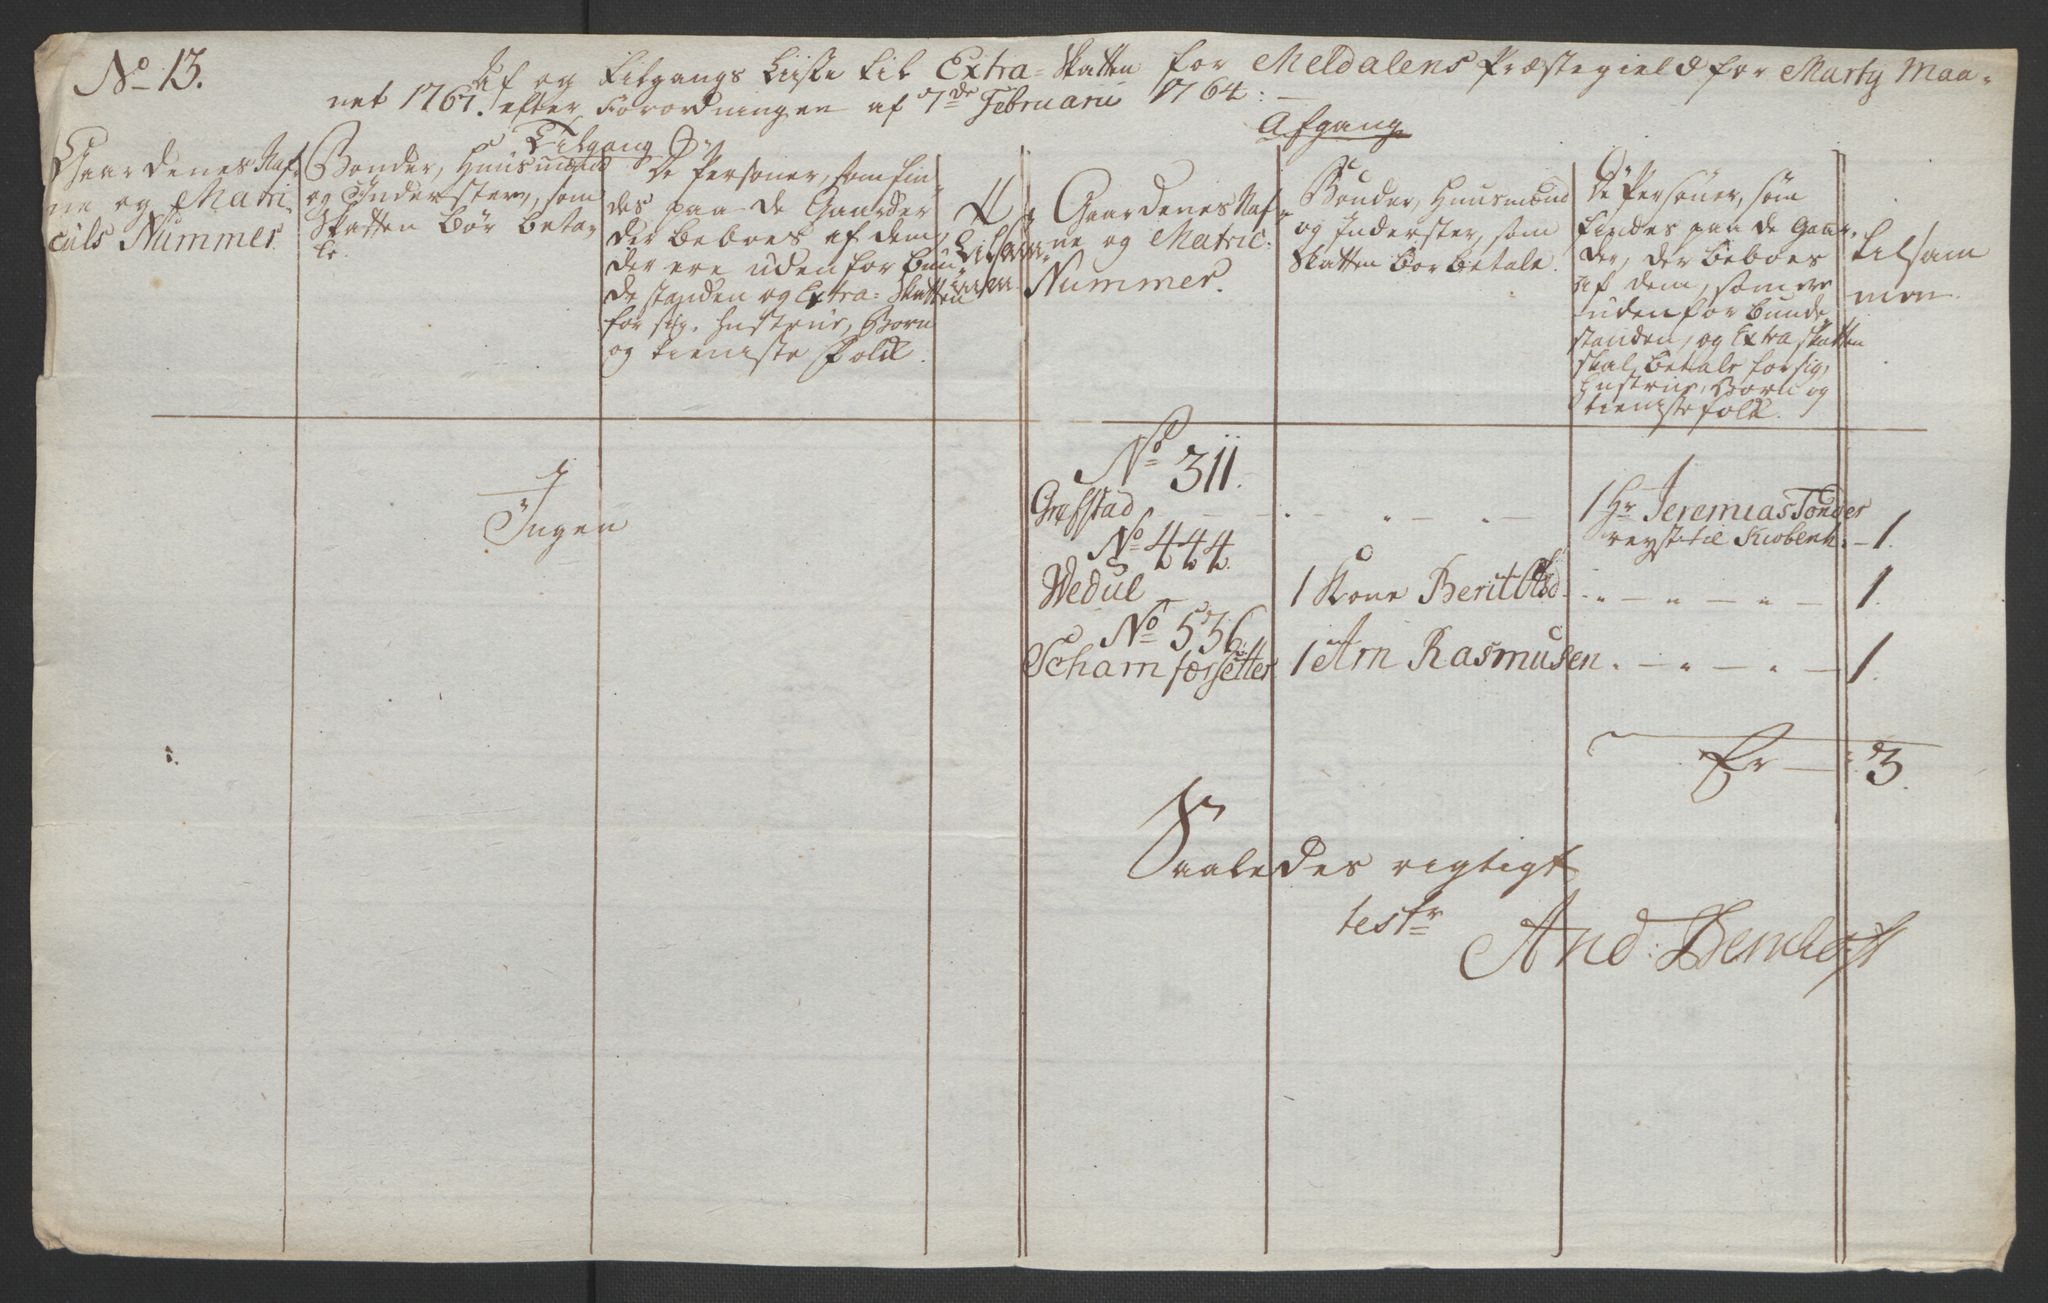 No 13.
Af og Tilgangs Liste til Extra-Skatten for Meldalens Præstegield for Marty Maa-
net 1767. efter Forordningen af 7de Februarii 1764:
Tilgang
Afgang
Gaardenes Naf-
ne og Matri-
culs Nummer.
Bonder, Huusmænd
og Inderster, som
Skatten bør beta-
le.
De Personer, som fin-
des paa de Gaarder
der beboes af dem,
der ere uden for bun-
destanden og Extra-Skatten
for sig, Hustrue, Børn
og tieniste Folck.
Tilsam-
men
Gaardenes Naf-
ne og Matric:
Nummer.
Bonder, Huusmænd
og Inderster, som
Skatten bør betale.
De Personer, som
findes paa de Gaar-
der, der beboes
af dem, som ere
uden for bunde-
standen, og Extra skatten
skal betale for sig,
Hustrue, Børn og
tienistefolck.
tilsam
men
Ingen
No 311.
Grefstad 1 Hr Jeremias Tonder
reyst til Kiøbenh. - 1.
No 444.
Wedul 1 Kone Berit Olsd - 1.
No 536.
Scham færsetter 1 Arn Rasmusen - 1.
Er - 3.
Saaledes rigtigt
testr
And: